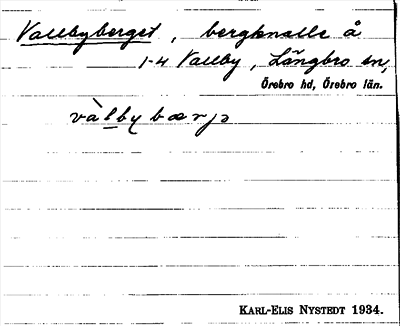 Vallbyberget, bergknalle å
1-4 Vallby, Längbro sn,
Örebro hd, Örebro län.
vàlby bærjə
KARL-ELIS NYSTEDT 1934.